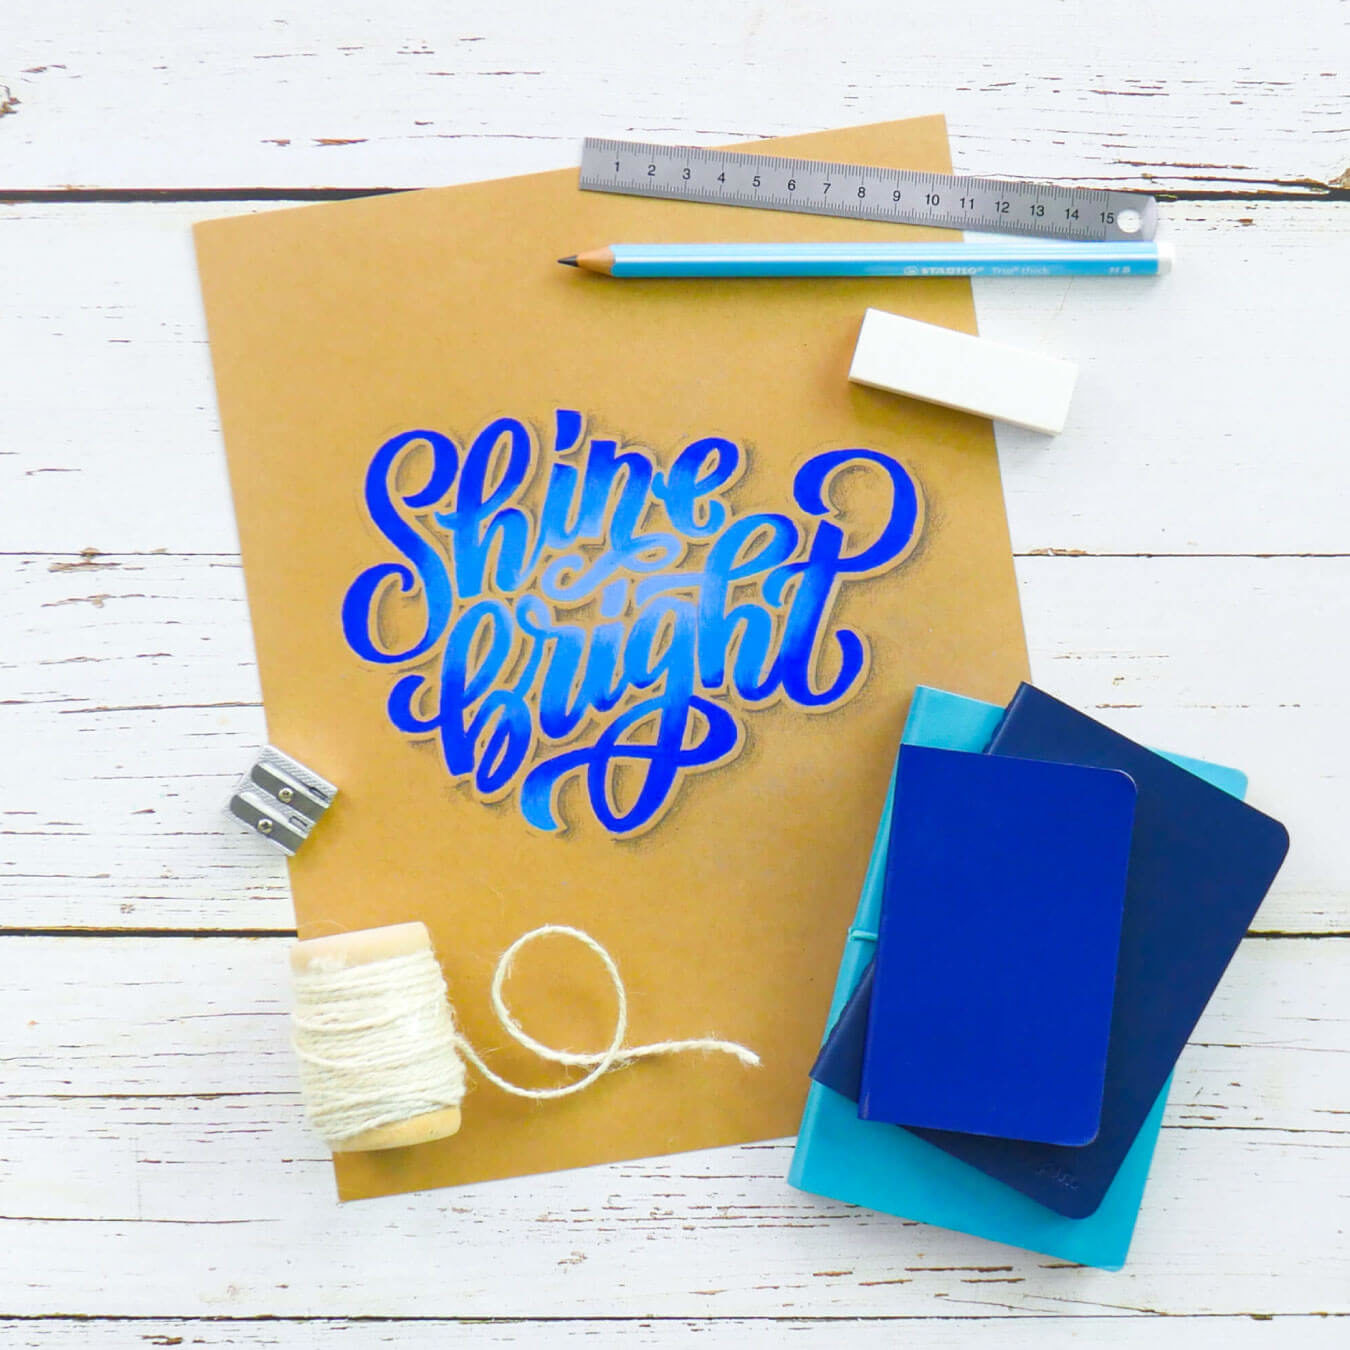 1 2 3 4 5 6 7 8 9 10 11 12 13 14 15
STABILO Trio thick HB
Shine
bright